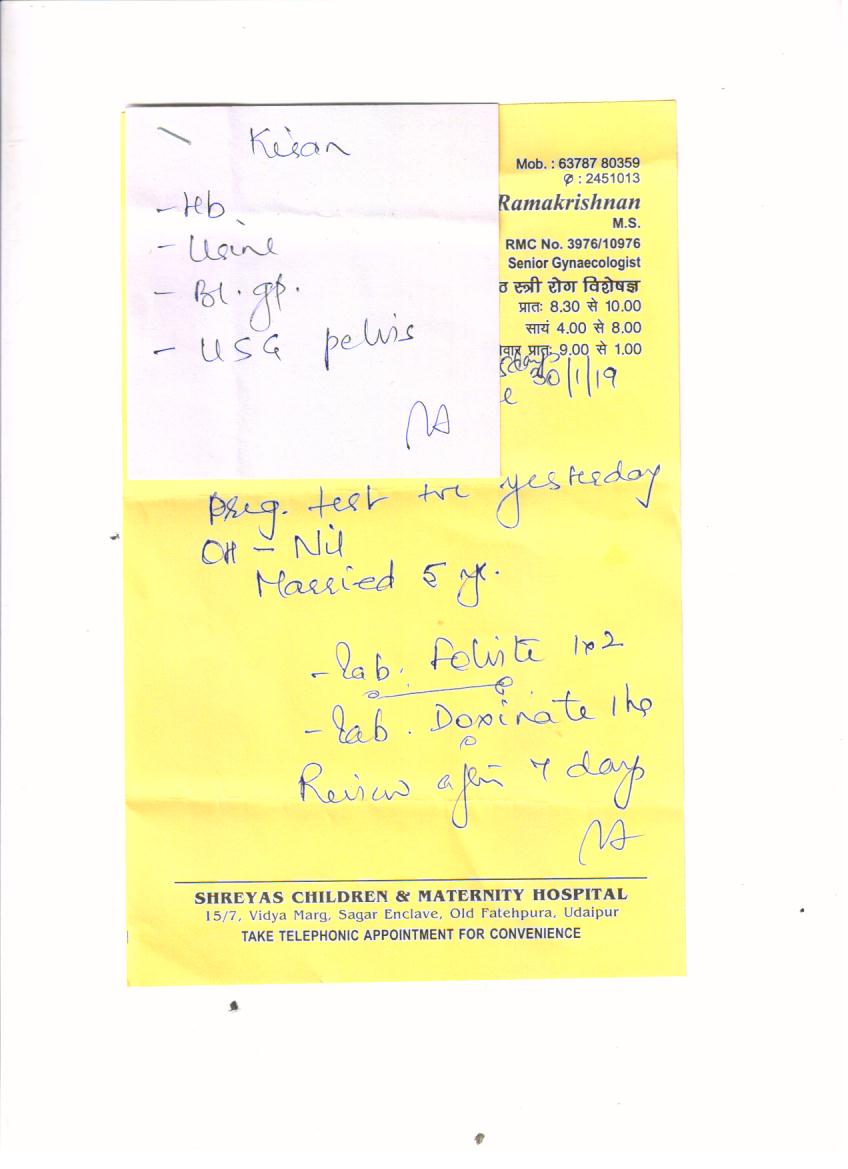 Kiran
- Hb
- Urine
- Bl. gp.
- USG pelvis
Mob. : 63787 80359
✆ : 2451013
Ramakrishnan
M.S.
RMC No. 3976/10976
Senior Gynaecologist
स्त्री रोग विशेषज्ञ
प्रातः 8.30 से 10.00
सायं 4.00 से 8.00
प्रातः 9.00 से 1.00
30/1/19
Preg. test +ve yesterday
OH - Nil
Married 5 yr.
- Tab. Folvite 1x2
- Tab. Doxinate 1 hs
Review after 7 days
SHREYAS CHILDREN & MATERNITY HOSPITAL
15/7, Vidya Marg, Sagar Enclave, Old Fatehpura, Udaipur
TAKE TELEPHONIC APPOINTMENT FOR CONVENIENCE